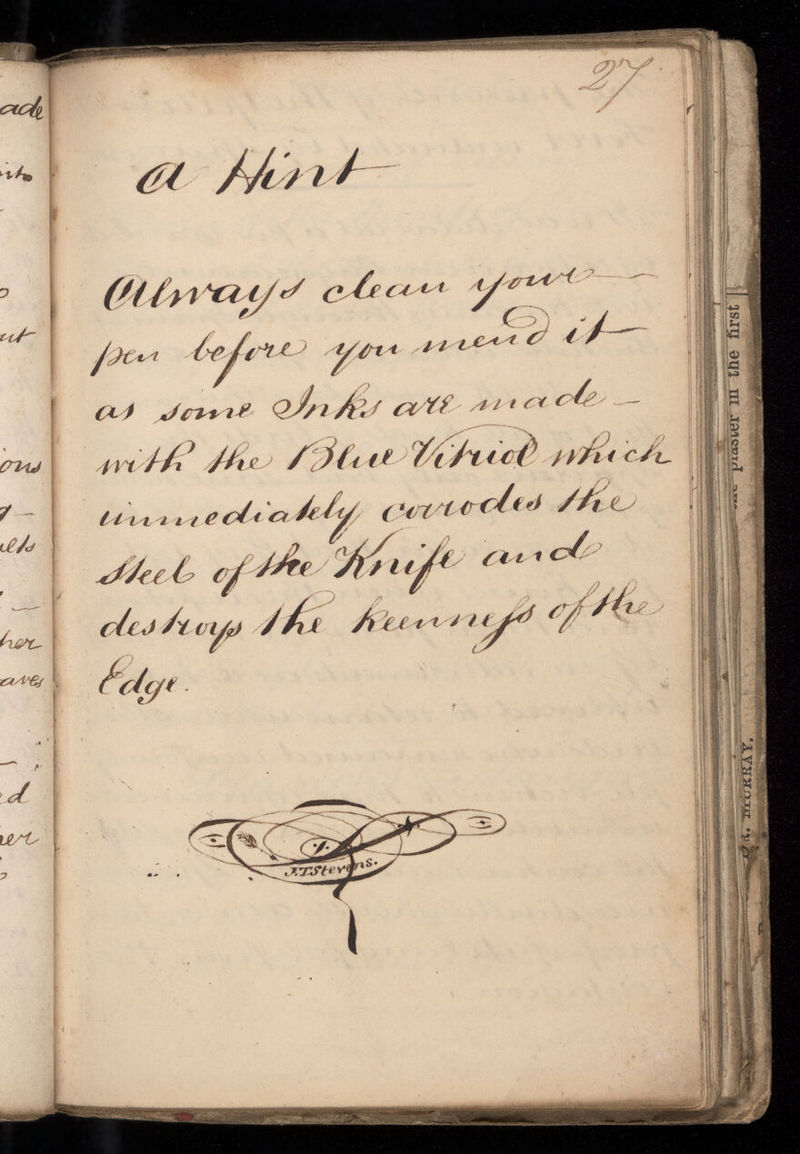 27
A Hint
Always clean your
pen before you mend it
as some Inks are made
with the Blue Vitriol which
immediately corrodes the
Steel of the Knife and
destroys the keenness of the
Edge.
J.T. Stevens.
ade
into
ut
ons
her
aves
ed
her
plaster in the first
MURRAY.